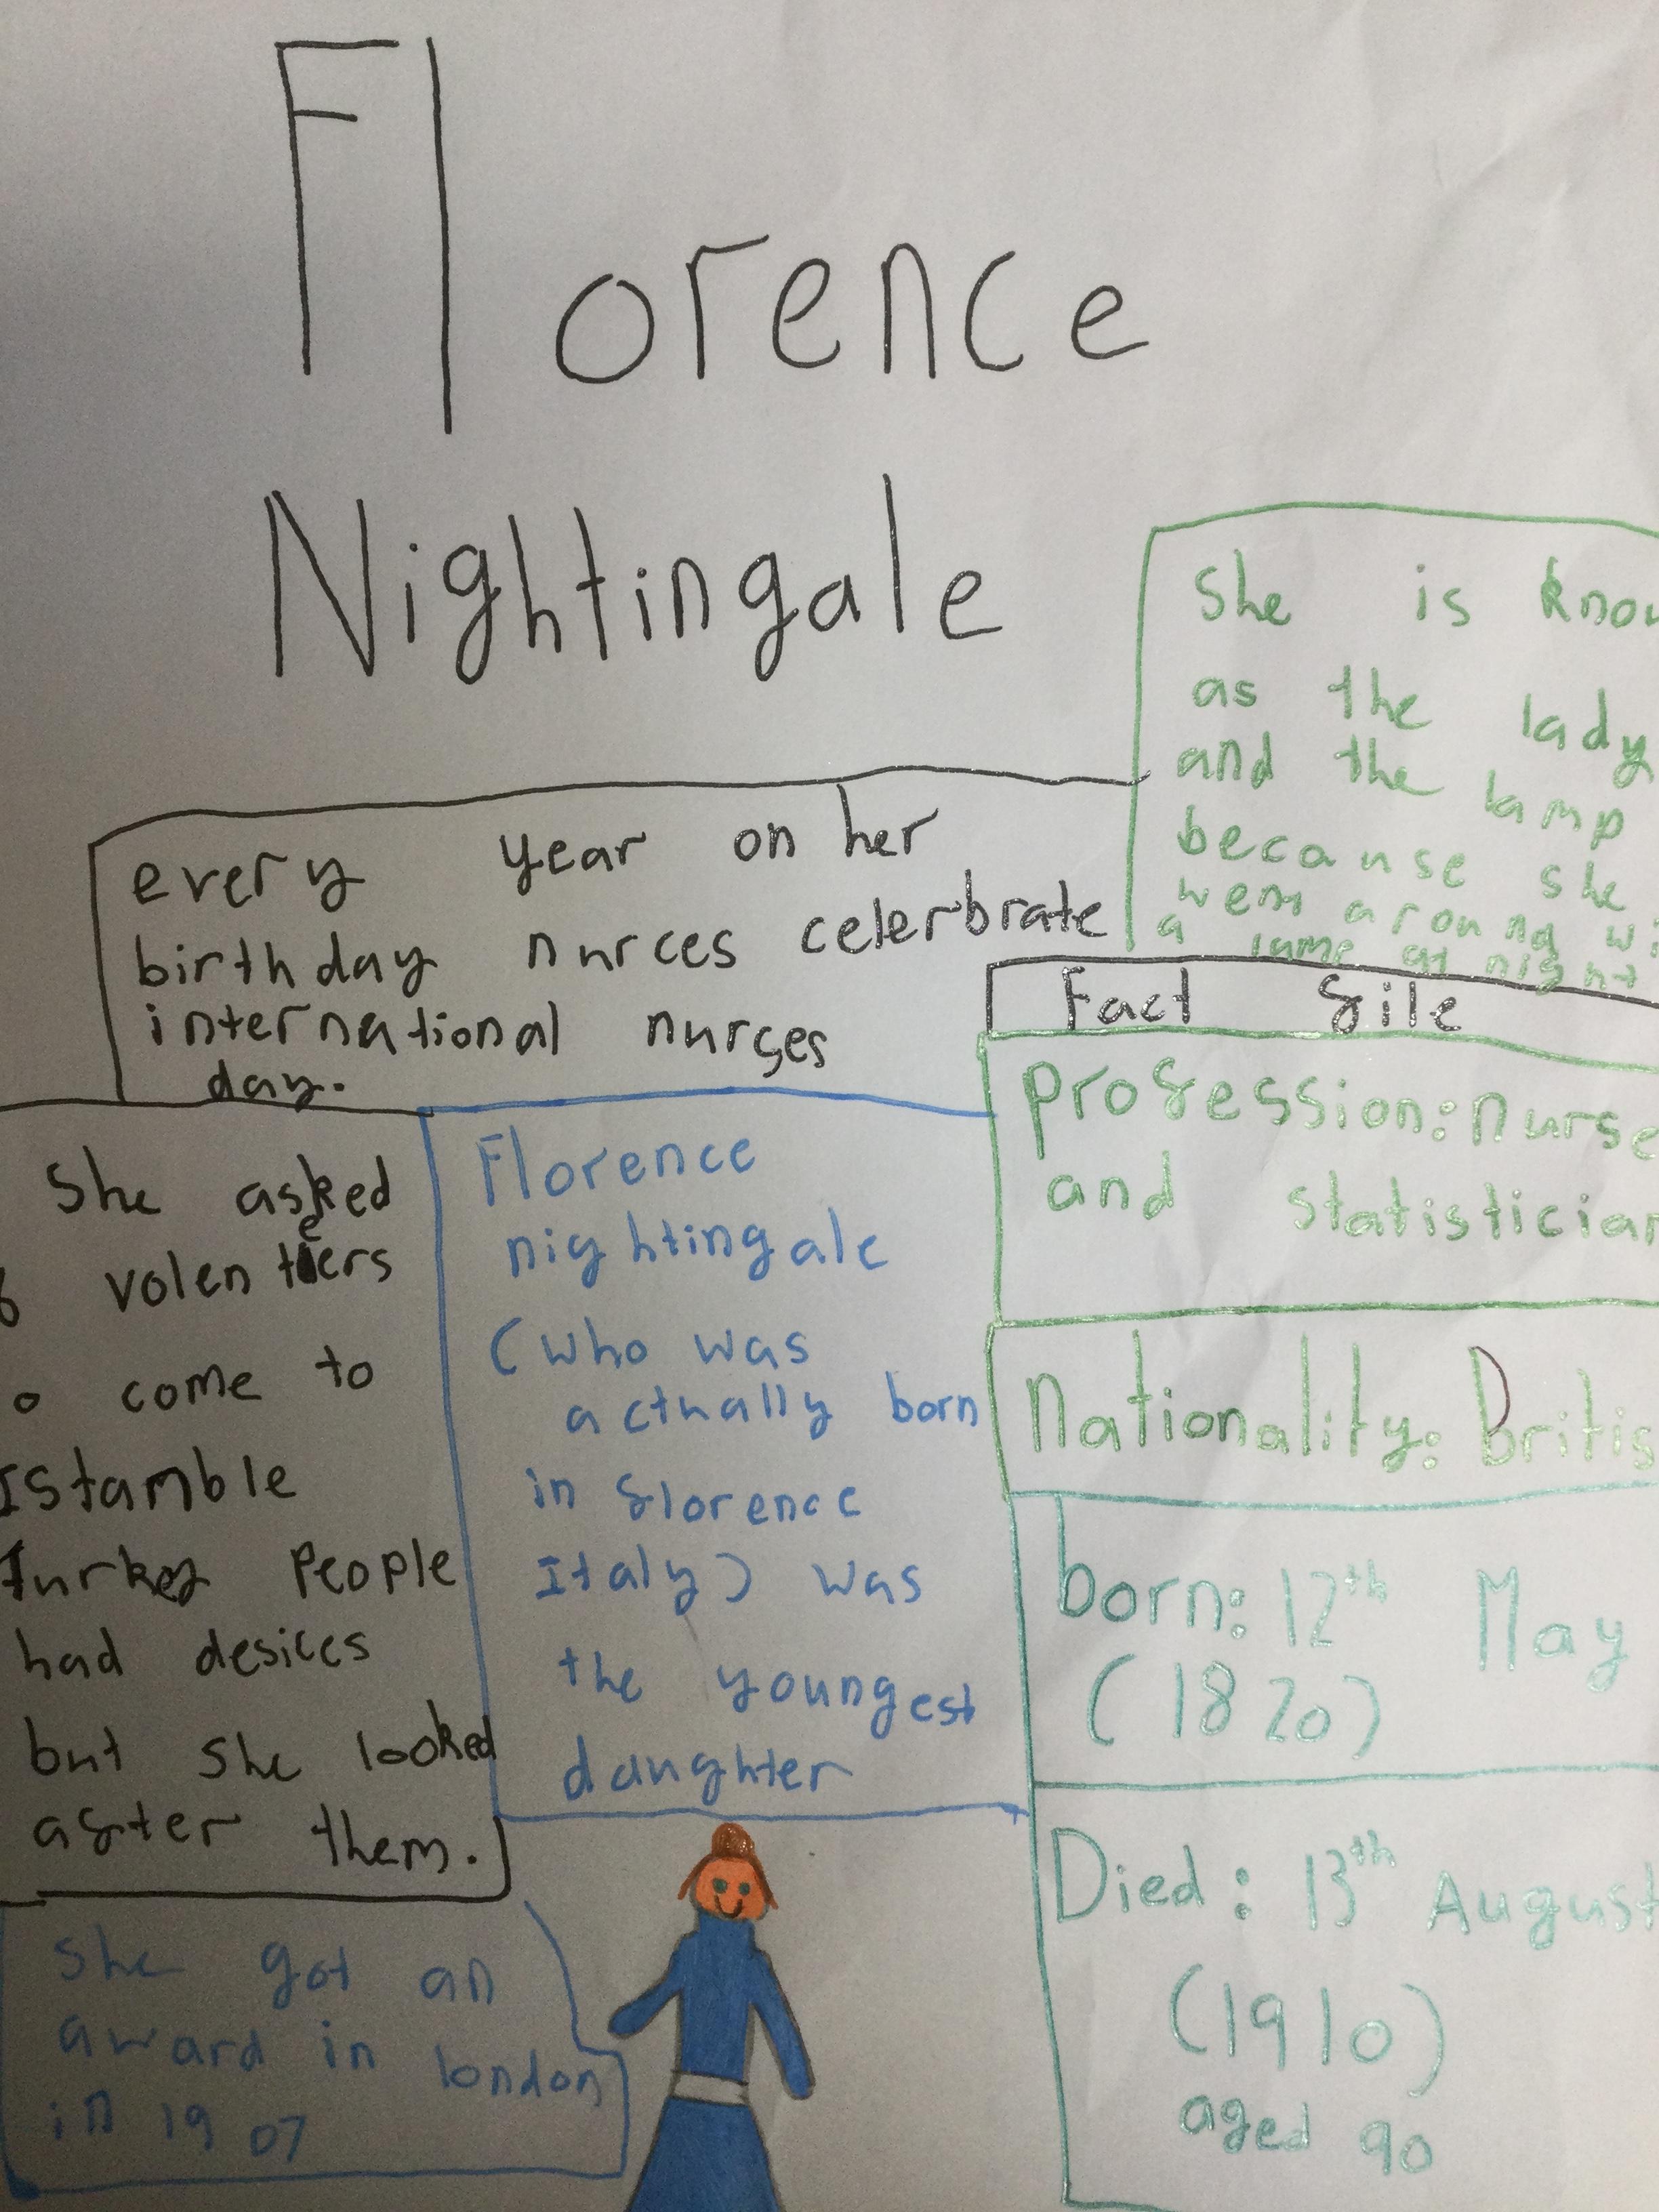 Florence
Nightingale
She is know
as the lady
and the lamp
because she
went around wi
a lamp at night
every year on her
birthday nurces celerbrate
international nurses
day.
She asked
6 volenteers
o come to
Istamble
Turkey People
had desices
but she looked
after them.
Florence
nightingale
(who was
actually born
in florence
Italy) was
the youngest
daughter
she got an
award in london
in 1907
Fact file
Profession: nurse
and statistician
Nationality: Britis
born: 12th May
(1820)
Died: 13th August
(1910)
aged 90